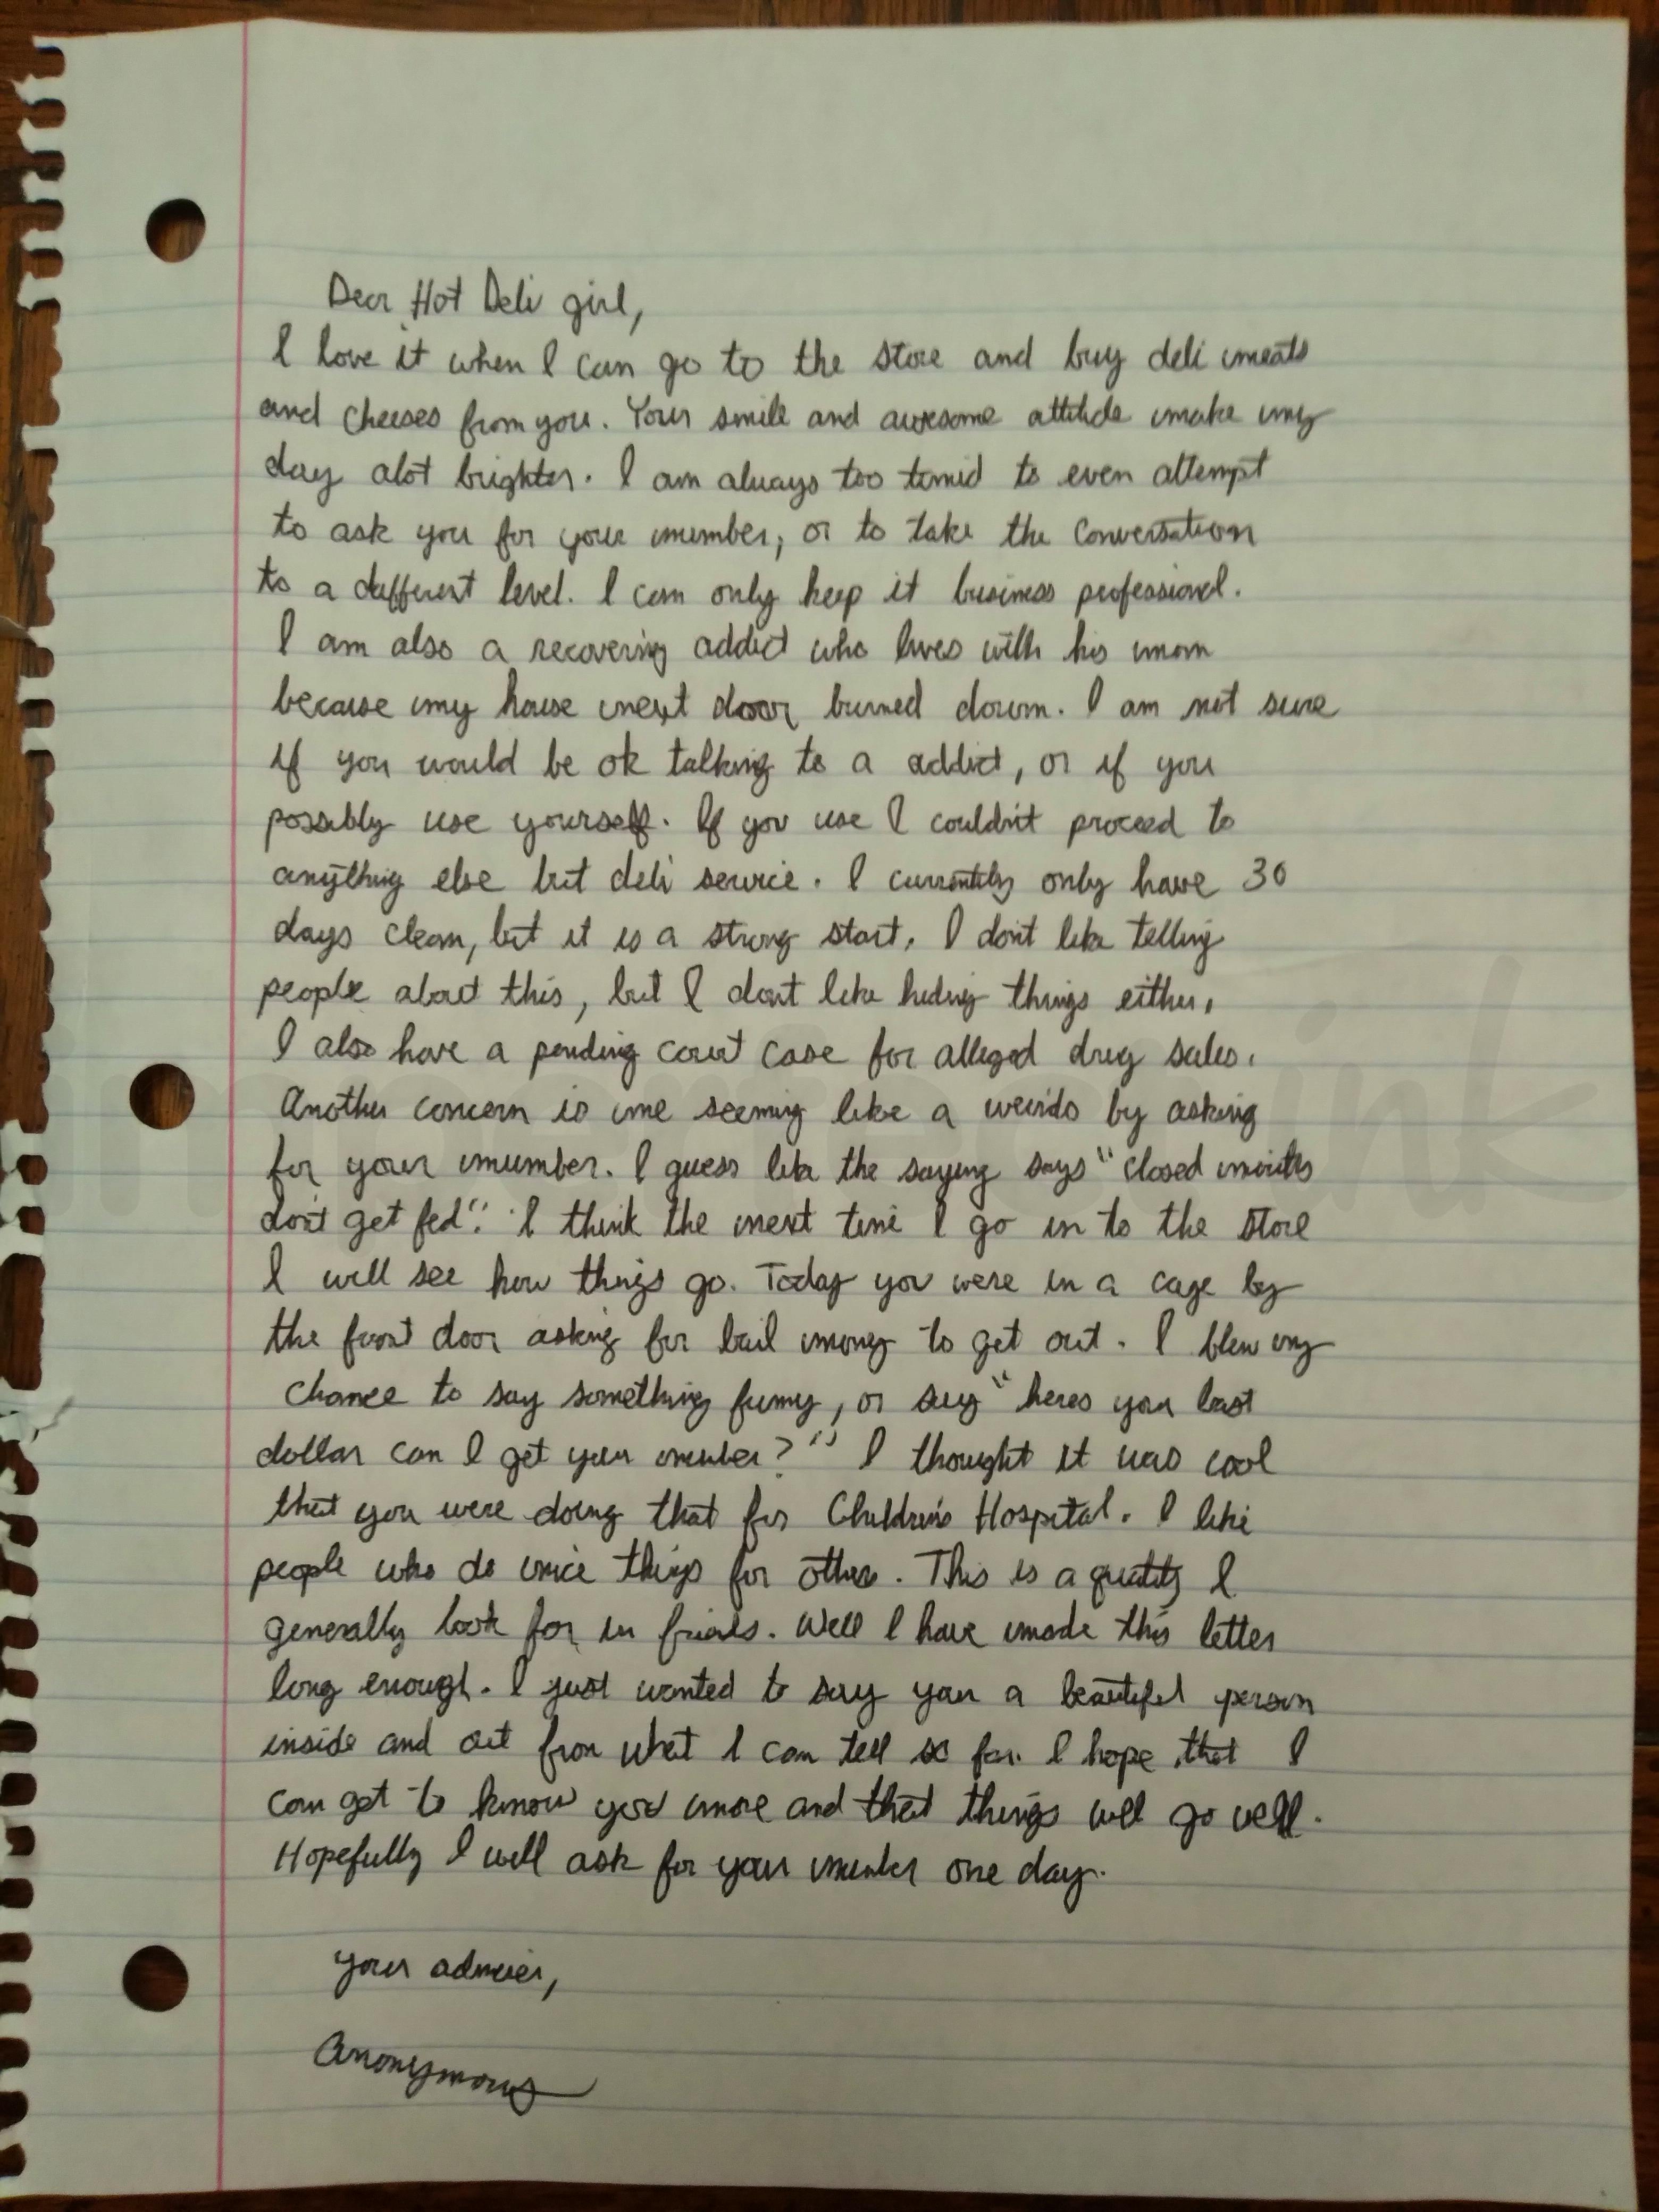 Dear Hot Deli girl,
I love it when I can go to the store and buy deli meats
and cheeses from you. Your smile and awesome attitude make my
day alot brighter. I am always too timid to even attempt
to ask you for your number, or to take the conversation
to a different level. I can only keep it business professional.
I am also a recovering addict who lives with his mom
because my house next door burned down. I am not sure
if you would be ok talking to a addict, or if you
possibly use yourself. If you use I couldn't proceed to
anything else but deli service. I currently only have 30
days clean, but it is a strong start. I don't like telling
people about this, but I don't like hiding things either.
I also have a pending court case for alleged drug sales.
Another concern is me seeming like a weirdo by asking
for your number. I guess like the saying says "closed mouths
don't get fed". I think the next time I go in to the store
I will see how things go. Today you were in a cage by
the front door asking for bail money to get out. I blew my
chance to say something funny, or say "heres your last
dollar can I get your number?" I thought it was cool
that you were doing that for Children's Hospital. I like
people who do nice things for others. This is a quality I
generally look for in friends. Well I have made this letter
long enough. I just wanted to say you a beautiful person
inside and out from what I can tell so far. I hope that I
can get to know you more and that things will go well.
Hopefully I will ask for your number one day.
your admirer,
Anonymous